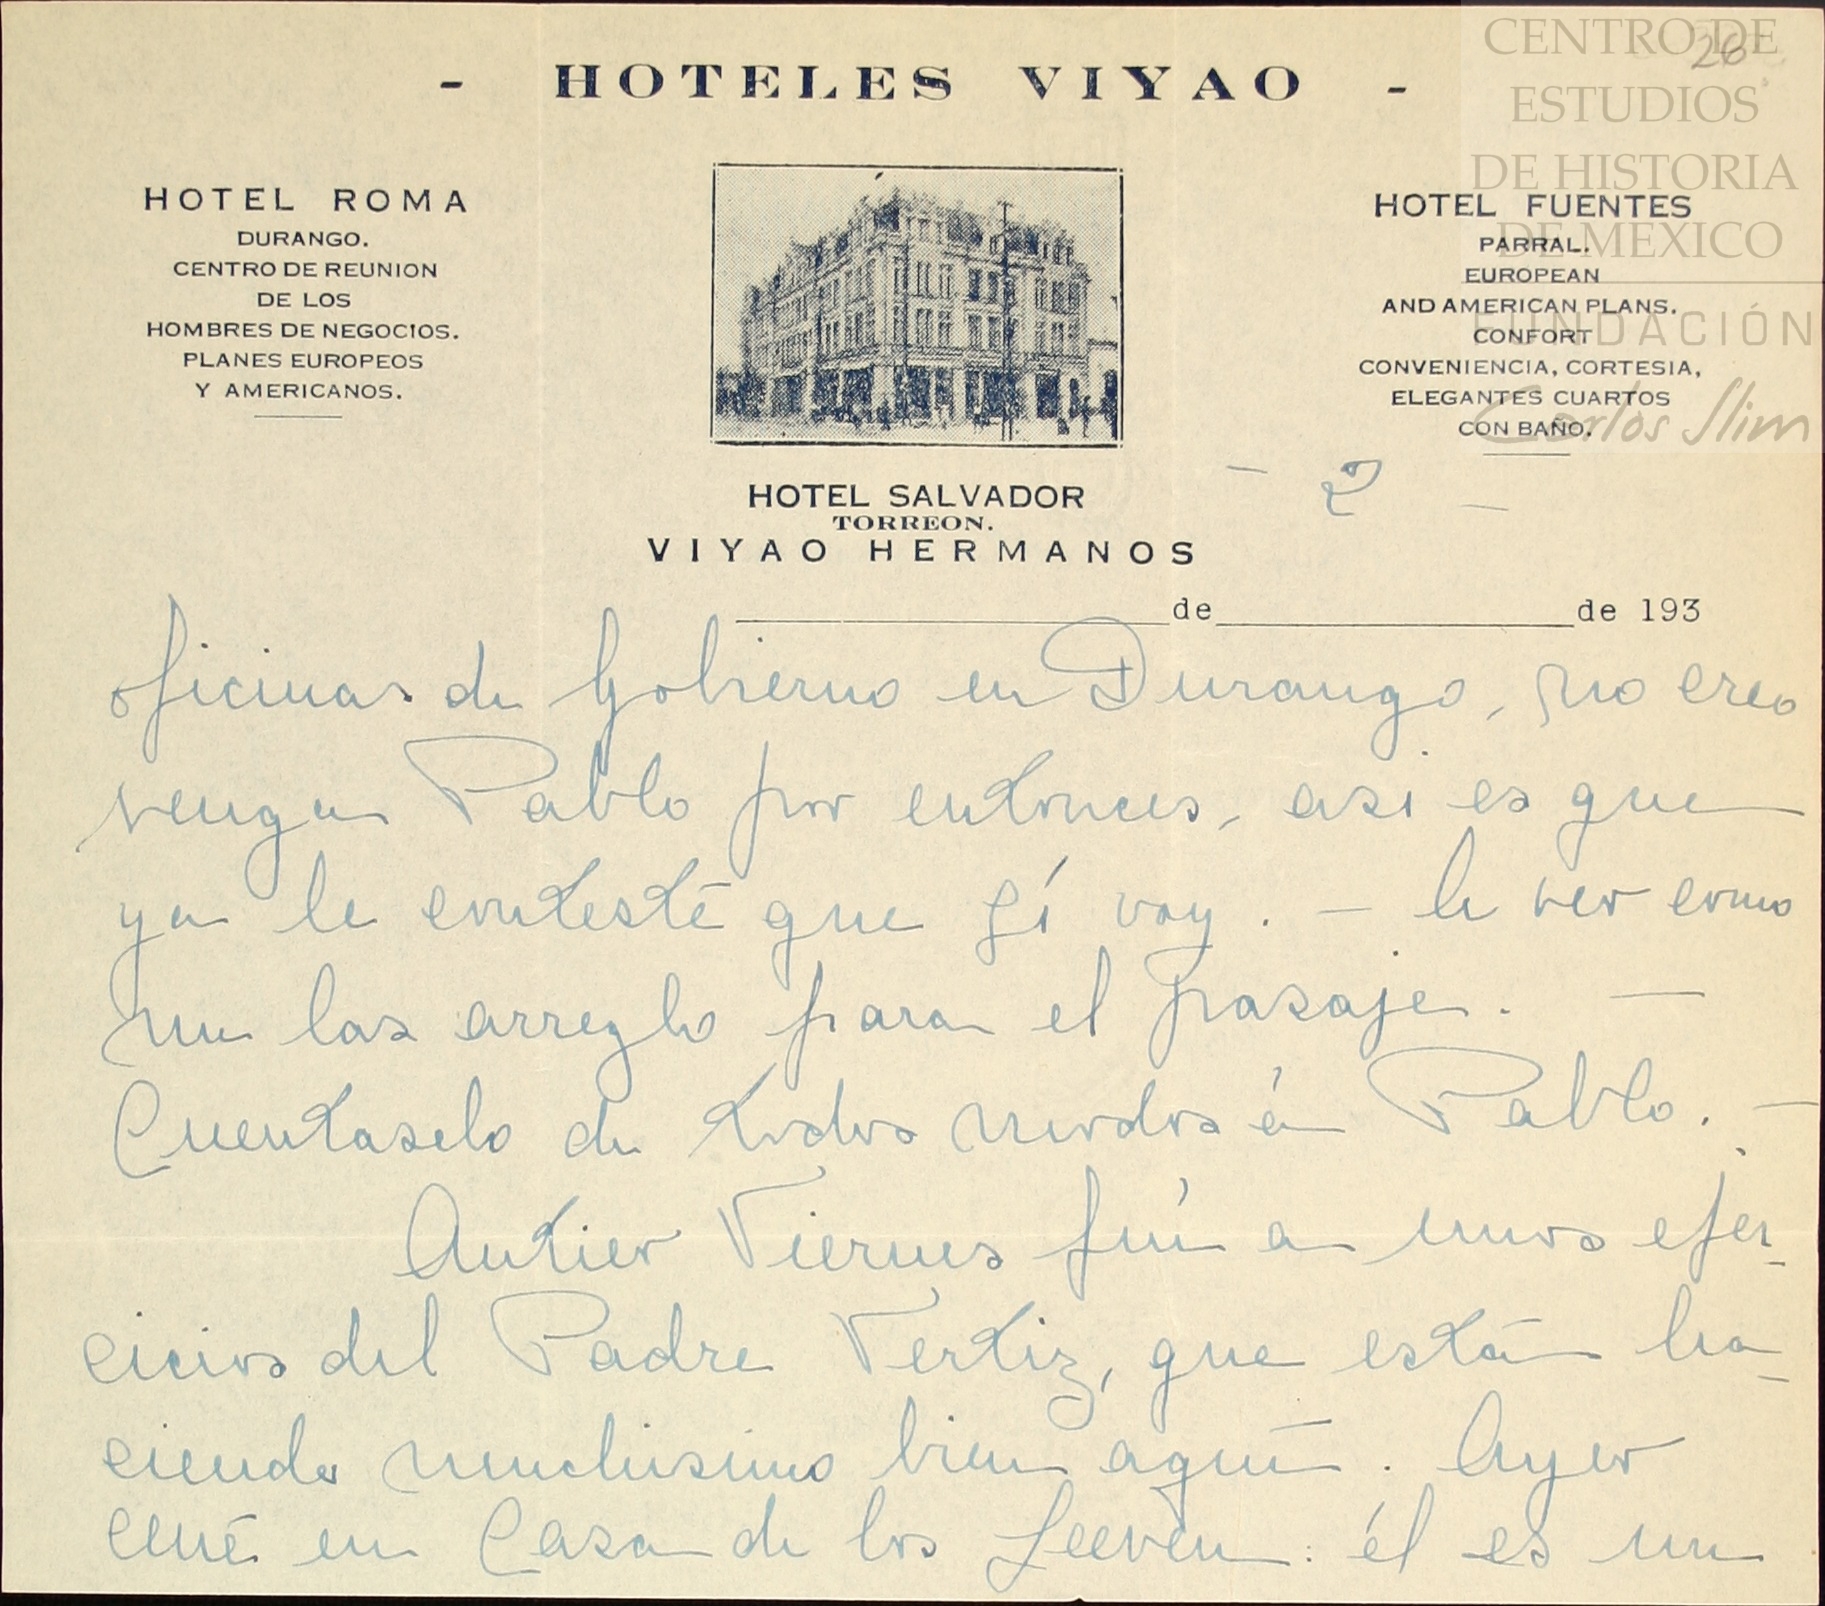 - HOTELES VIYAO -
26
CENTRO DE
ESTUDIOS
DE HISTORIA
DE MEXICO
FUNDACIÓN
Carlos Slim
HOTEL ROMA
DURANGO.
CENTRO DE REUNION
DE LOS
HOMBRES DE NEGOCIOS.
PLANES EUROPEOS
Y AMERICANOS.
HOTEL FUENTES
PARRAL.
EUROPEAN
AND AMERICAN PLANS.
CONFORT
CONVENIENCIA, CORTESIA,
ELEGANTES CUARTOS
CON BAÑO.
HOTEL SALVADOR
TORREON.
VIYAO HERMANOS
- 2 -
de de 193
oficinas de Gobierno en Durango, no creo
venga Pablo por entonces, asi es que
ya le contesté que sí voy. - A ver como
me las arreglo para el pasaje. -
Cuentaselo de todos modos á Pablo. -
Antier Viernes fuí a unos ejer-
cicios del Padre Vertiz, que están ha-
ciendo muchisimo bien aquí. Ayer
cené en Casa de los : él es un